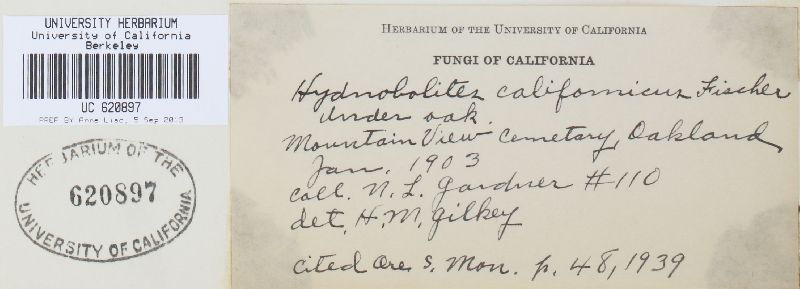 UNIVERSITY HERBARIUM
University of California
Berkeley
UC 620897
PREP BY Anne Liao, 5 Sep 2013
HERBARIUM OF THE
620897
UNIVERSITY OF CALIFORNIA
HERBARIUM OF THE UNIVERSITY OF CALIFORNIA
FUNGI OF CALIFORNIA
Hydnobolites californicus Fischer
under oak.
Mountain View Cemetary, Oakland
Jan. 1903
coll. N. L. Gardner #110
det. H. M. Gilkey
cited Ore. S. Mon. p. 48, 1939